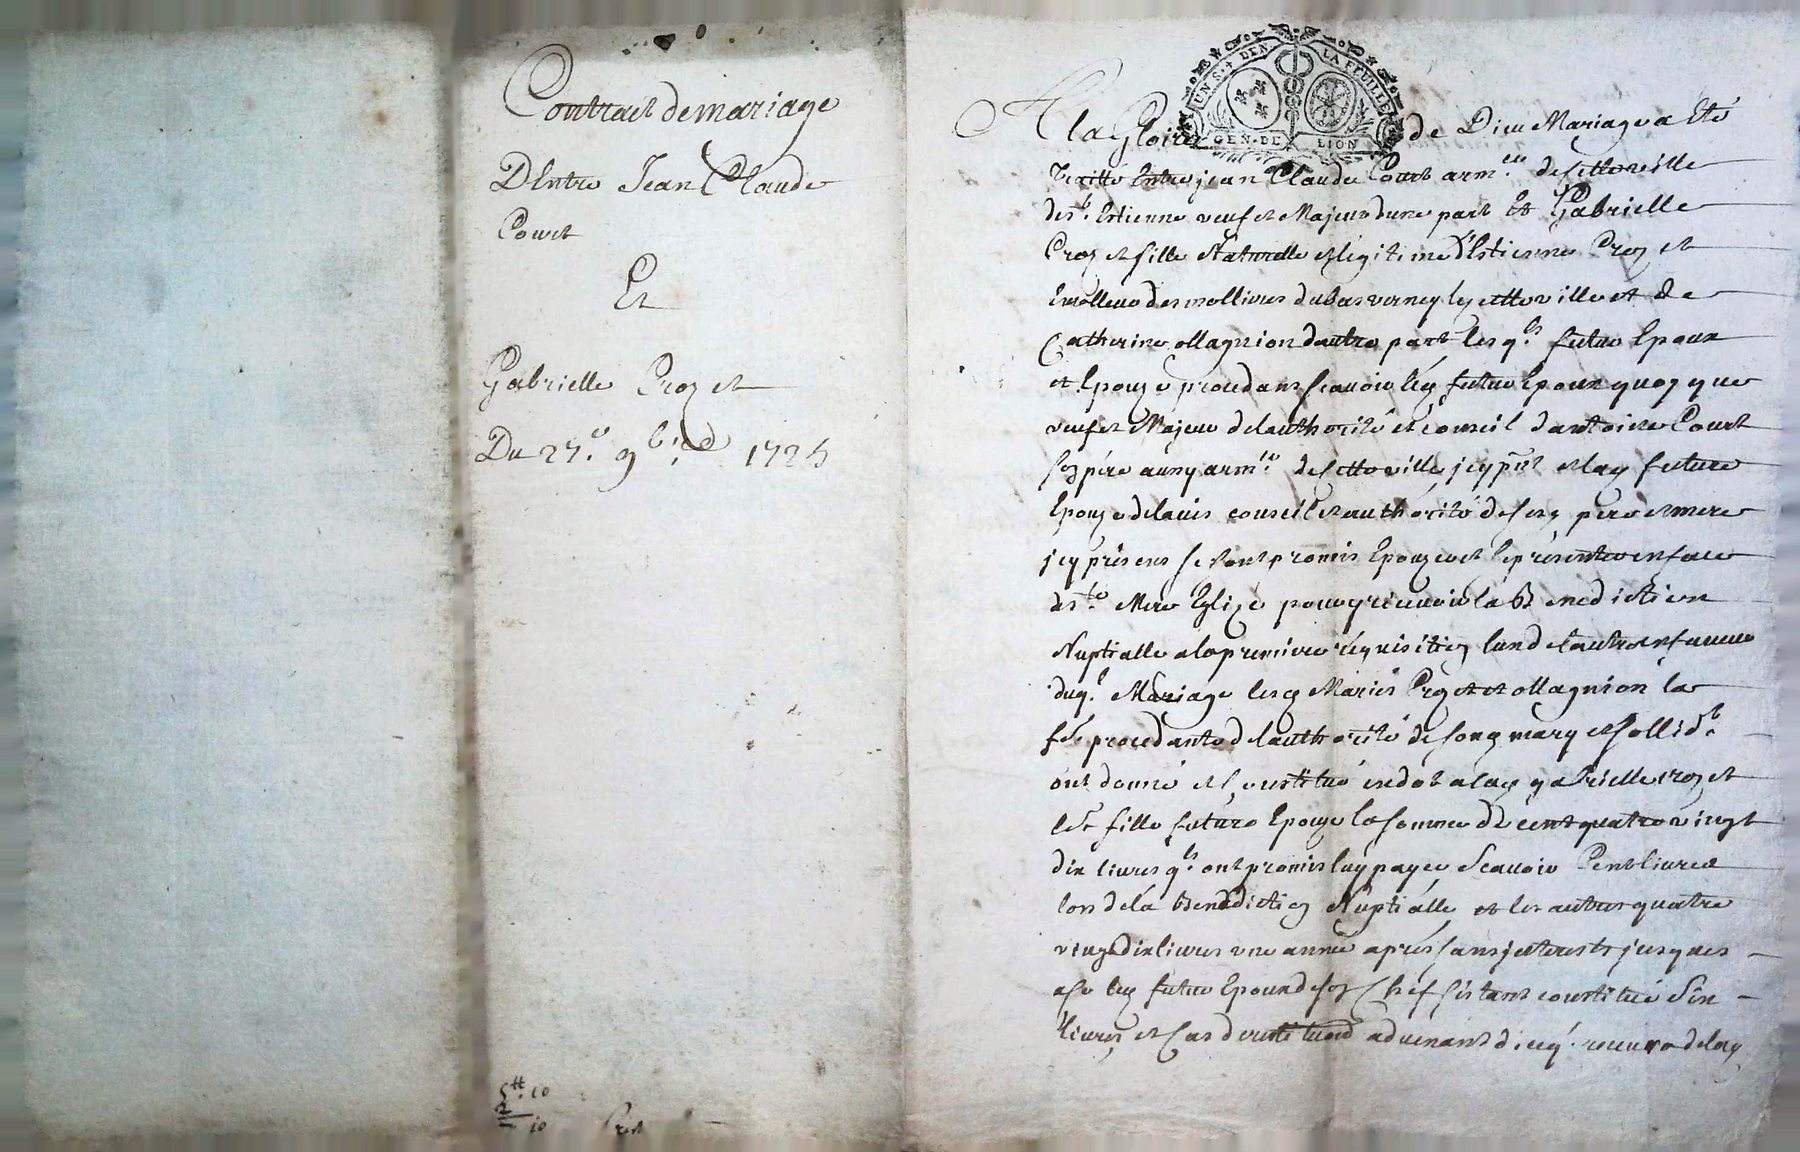 Contract de mariage
D'Entre Jean Claude
Court
Et
Gabrielle Croz et
Du 27.e 9b.re 1725
5# . 10
2
10
UN S. + DEN. LA FEUILLE
GEN. DE LION
A la Gloire de Dieu Mariage a Eté
Traitté Entre jean Claude Court arm.er de cette ville
de S.t Estienne veuf et Majeur dune part Et Gabrielle
Croz et fille Naturelle et legitime d'Estienne Croz et
des mollieres du bas verney de cette ville et de
Catherine ollagnion dautre part lesq.ls futur Epoux
et Epouze procedans scavoir led futur Epoux quoy que
veuf et Majeur de lauthorité et conseil dantoine Court
son père aussy arm.er de cette ville jcy pnt et lad future
Epouze de lavis conseil et authorité de ses père et mere
jcy présens se sont promis Epouzer et se présenter en face
de s.te Mere Eglize pour y recevoir la Benediction
Nuptialle a la premiere réquisition lun de lautre en faveur
duq.l Mariage lesd Mariés Croz et et ollagnion la
f.e procedante de lauthorité de son mary et sollid.t
ont donné et constitué en dot a lad gabrielle croz et
leur fille future Epouze la somme de cent quatre vingt
dix livres q.ls ont promis luy payer Scavoir Cent livres
lors de la Benediction Nuptialle et les autres quatre
vingt dix livres une année après sans jnterests jusques
a ce led futur Epoux de son Chef s'estant constitué Six
livres et cas de restitution advenant d'icell. recevra de lad